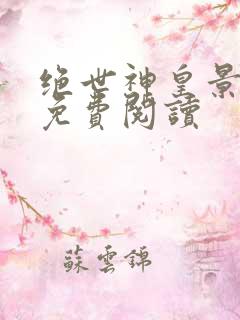 绝世神皇景
免費閱讀
蘇雲錦